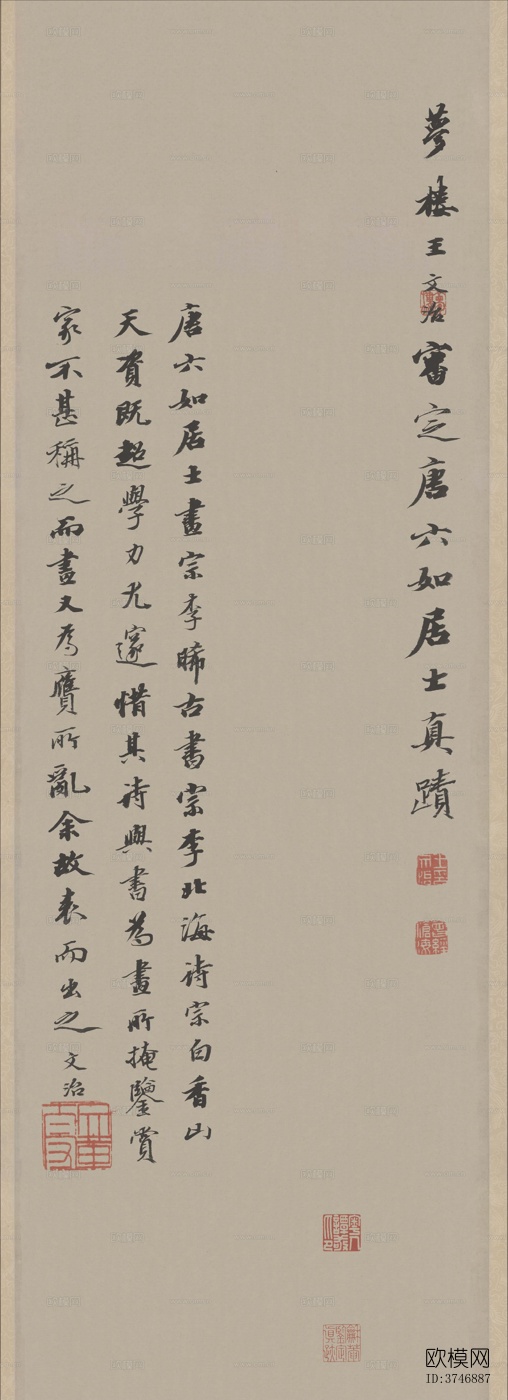 夢樓王文治審定唐六如居士真蹟
唐六如居士畫宗李晞古書宗李北海詩宗白香山
天資既超學力尤邃惜其詩與書為畫所掩鑒賞
家不甚稱之而畫又為贋所亂余故表而出之文治
欧模网
ID:3746887